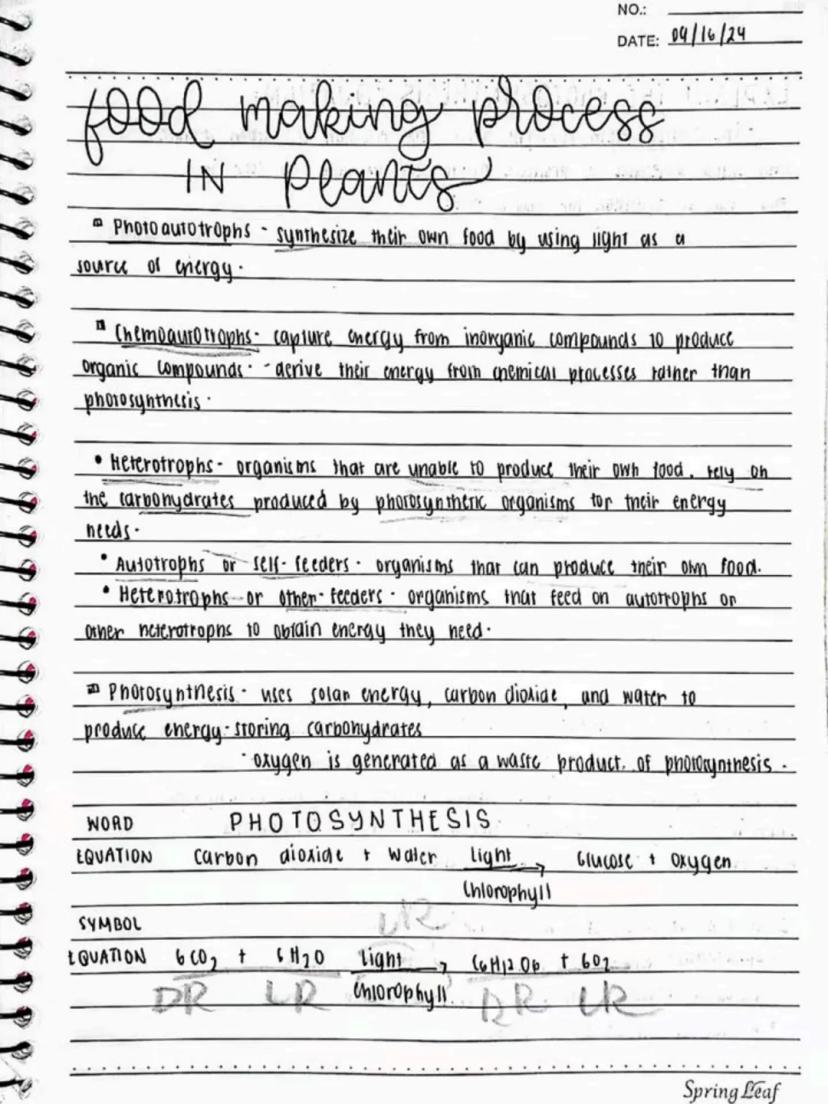 NO.:
DATE: 09/16/24
food making process
IN Plants
Photoautotrophs - synthesize their own food by using light as a
source of energy.
Chemoautotrophs - capture energy from inorganic compounds to produce
organic compounds. - derive their energy from chemical processes rather than
photosynthesis.
• Heterotrophs - organisms that are unable to produce their own food, rely on
the carbohydrates produced by photosynthetic organisms for their energy
needs.
• Autotrophs or self-feeders - organisms that can produce their own food.
• Heterotrophs or other-feeders - organisms that feed on autotrophs or
other heterotrophs to obtain energy they need.
Photosynthesis - uses solar energy, carbon dioxide, and water to
produce energy-storing carbohydrates
· oxygen is generated as a waste product of photosynthesis.
WORD PHOTOSYNTHESIS
EQUATION Carbon dioxide + Water Light → Glucose + Oxygen
Chlorophyll
SYMBOL UR
EQUATION 6CO2 + 6H2O Light → C6H12O6 + 6O2
DR LR Chlorophyll DR UR
Spring Leaf